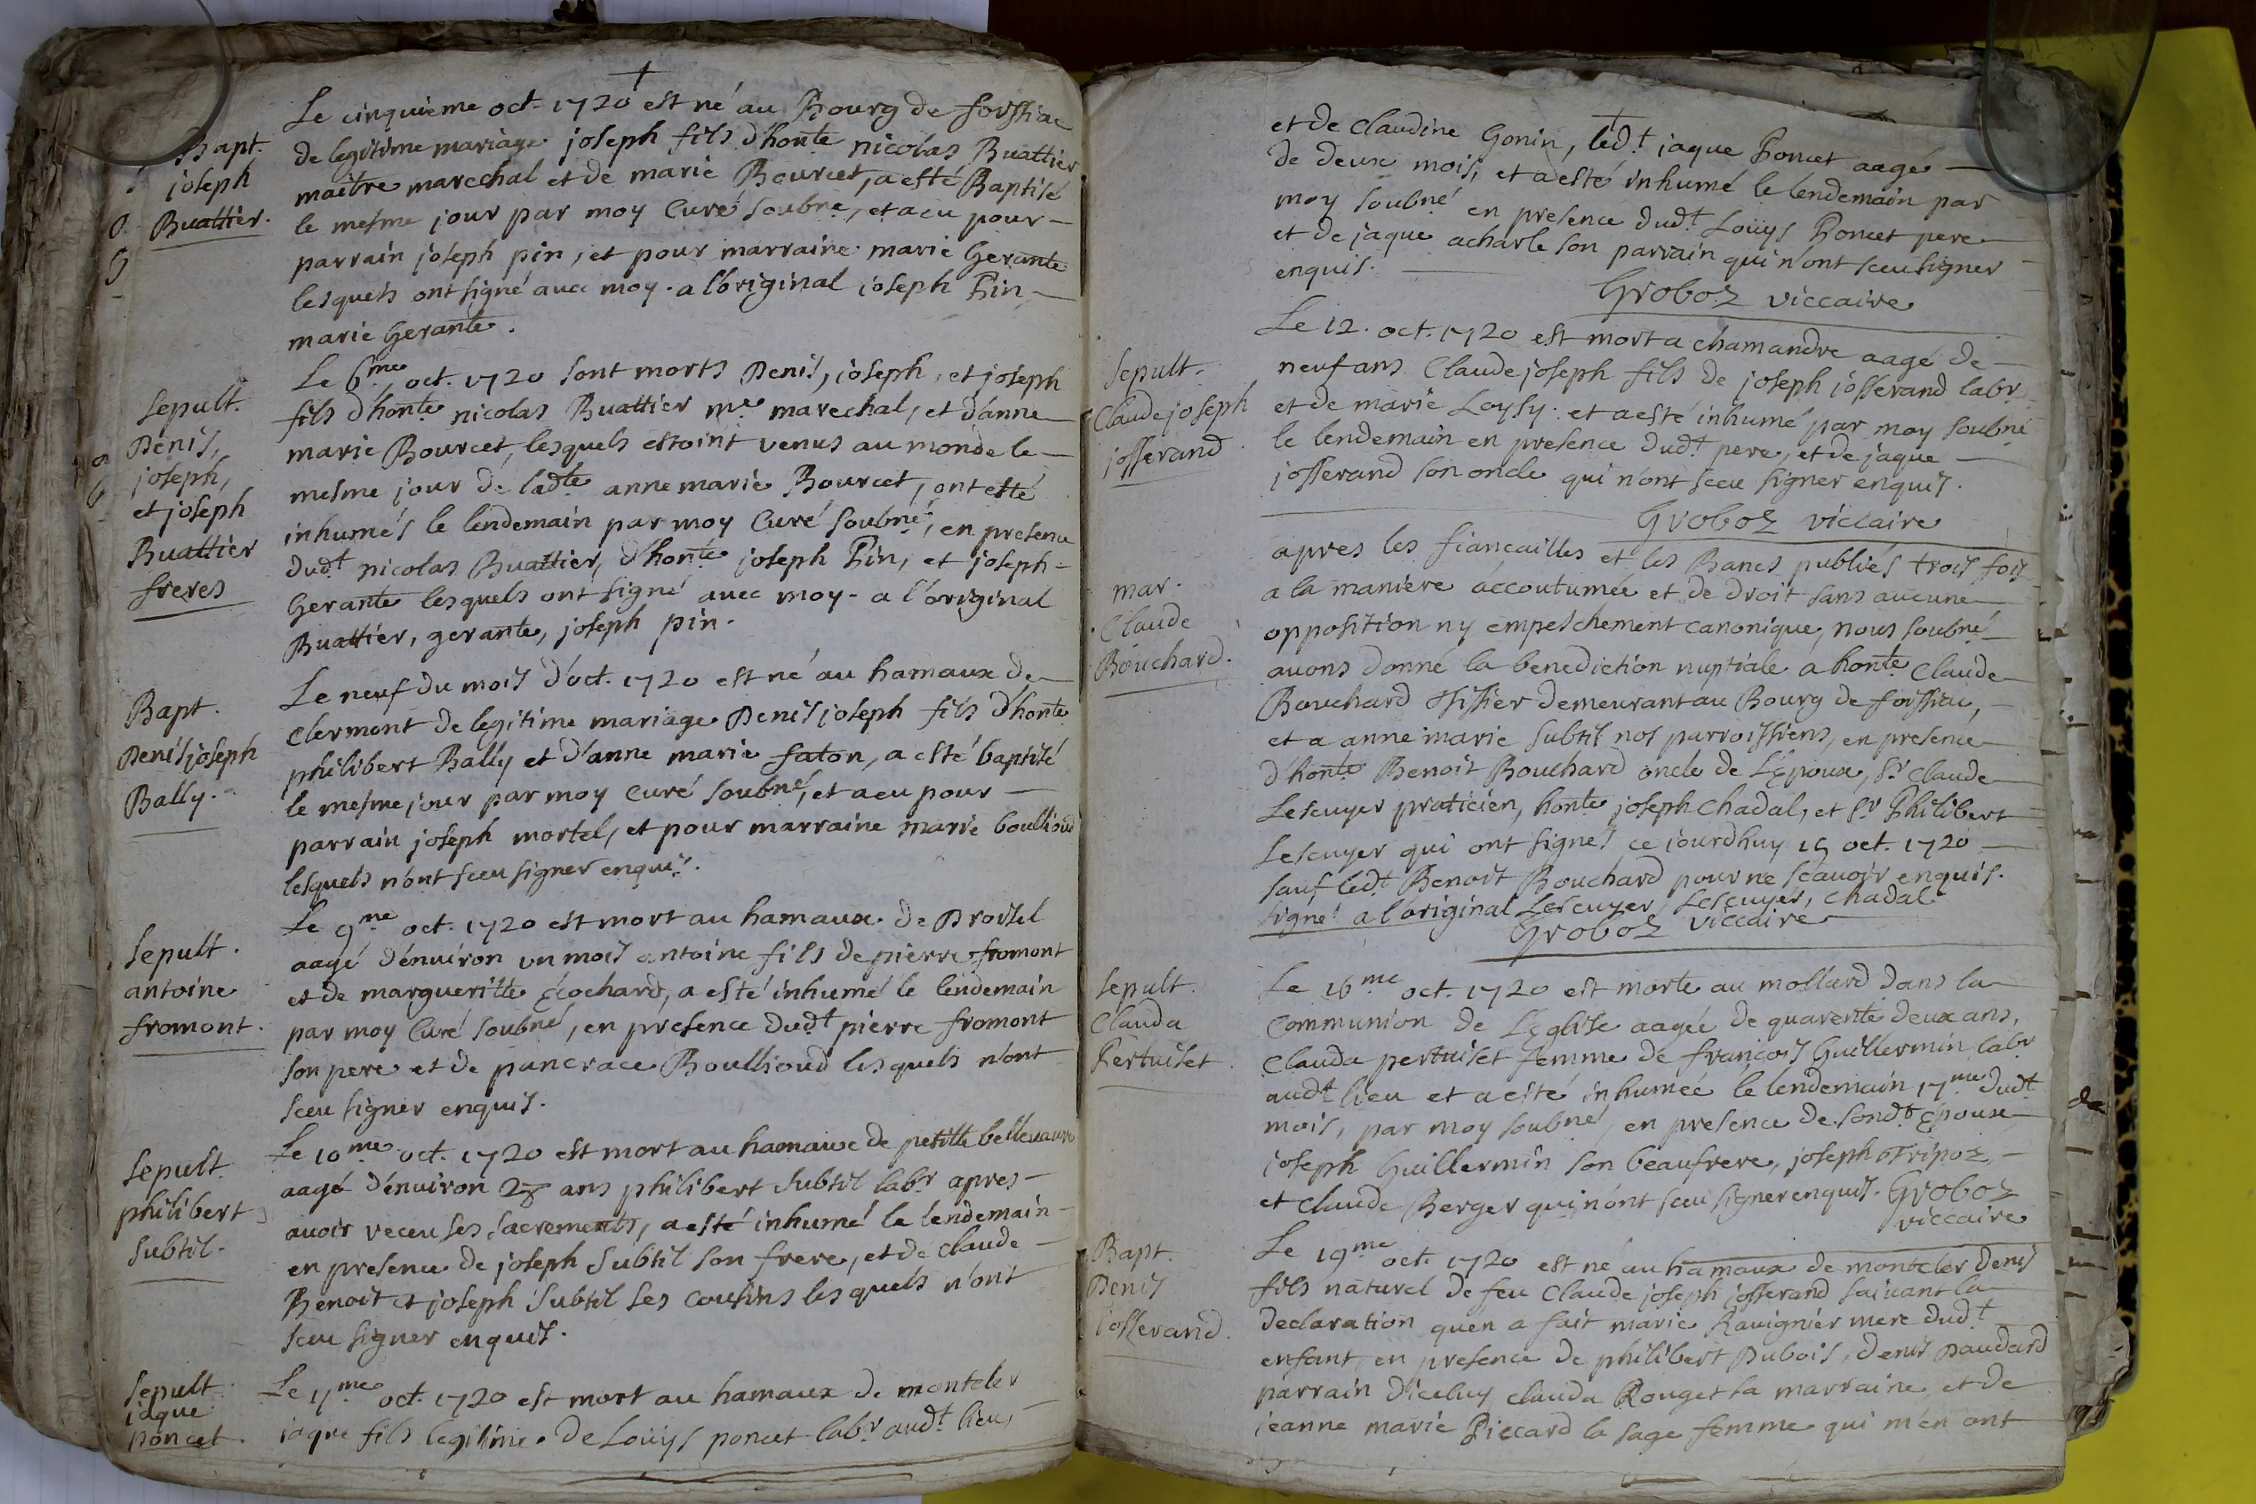 Bapt.
joseph
Buattier.
Le cinquieme oct. 1720 est né au Bourg de foissiac
de legitime mariage joseph fils d'honte nicolas Buattier
maitre marechal et de marie Bourcet, a esté Baptisé
le mesme jour par moy Curé soubné, et a eu pour
parrain joseph pin, et pour marraine marie Gerante
lesquels ont signé avec moy. a l'original joseph Pin
marie Gerante.
Sepult.
Denis,
joseph,
et joseph
Buattier
freres
Le 6me oct. 1720 sont morts Denis, joseph, et joseph
fils d'honte nicolas Buattier me marechal, et d'anne
marie Bourcet, lesquels estoint venus au monde le
mesme jour de ladte anne marie Bourcet, ont esté
inhumés le lendemain par moy Curé soubné, en presence
dudt nicolas Buattier, d'honte joseph Pin, et joseph
Gerante lesquels ont signé avec moy - a l'original
Buattier, gerante, joseph pin.
Bapt.
Denis joseph
Bally.
Le neuf du mois d'oct. 1720 est né au hamaux de
Clermont de legitime mariage Denis joseph fils d'honte
philibert Bally et d'anne marie faton, a esté baptisé
le mesme jour par moy Curé soubné, et a eu pour
parrain joseph mortel, et pour marraine marie boullioud
lesquels n'ont sceu signer enquis.
Sepult.
antoine
fromont.
Le 9me oct. 1720 est mort au hamaux de Broisel
aagé d'environ un mois antoine fils de pierre fromont
et de margueritte Cochard, a esté inhumé le lendemain
par moy Curé soubné, en presence dudt pierre fromont
son pere et de pancrace Boullioud lesquels n'ont
sceu signer enquis.
Sepult.
philibert
subtil.
Le 10me oct. 1720 est mort au hamaux de petitte bellevavre
aagé d'environ 28 ans philibert subtil labr apres
avoir receu ses sacrements, a esté inhumé le lendemain
en presence de joseph subtil son frere, et de claude
Benoit et joseph subtil ses cousins lesquels n'ont
sceu signer enquis.
Sepult.
jaque
poncet.
Le 11me oct. 1720 est mort au hamaux de montcler
jaque fils legitime de Louys poncet labr audt lieu,
et de claudine Gonin, ledt jaque Poncet aagé
de deux mois, et a esté inhumé le lendemain par
moy soubné en presence dudt Louys Poncet pere
et de jaque acharle son parrain qui n'ont sceu signer
enquis.
Groboz viccaire
Sepult.
Claude joseph
josserand
Le 12. oct. 1720 est mort a chamandre aagé de
neuf ans Claude joseph fils de joseph josserand labr
et de marie Loysy. et a esté inhumé par moy soubné
le lendemain en presence dudt pere, et de jaque
josserand son oncle qui n'ont sceu signer enquis.
Groboz viccaire
mar.
Claude
Bouchard.
apres les fiancailles et les Bancs publiés trois fois
a la maniere accoutumée et de droit sans aucune
opposition ny empeschement canonique, nous soubné
avons donné la benediction nuptiale a honte Claude
Bouchard Tissier demeurant au Bourg de foissiac,
et a anne marie subtil nos parroissiens, en presence
d'honte Benoit Bouchard oncle de L'Epoux, Sr Claude
Lescuyer praticien, honte joseph Chadal, et Sr Philibert
Lescuyer qui ont signés ce jourdhuy 15 oct. 1720
sauf ledt Benoit Bouchard pour ne scavoir enquis.
signé a l'original Lescuyer, Lescuyer, Chadal
Groboz viccaire
Sepult.
Clauda
Pertuiset.
Le 16me oct. 1720 est morte au mollard dans la
Communion de L'Eglise aagée de quarente deux ans,
Clauda pertuiset femme de françois Guillermin labr
audt lieu et a esté inhumée le lendemain 17me dudt
mois, par moy soubné, en presence de sondt Epoux
joseph Guillermin son beaufrere, joseph Tripoz,
et claude Berger qui n'ont sceu signer enquis. Groboz
viccaire
Bapt.
Denis
josserand.
Le 19me oct. 1720 est né au hamaux de montcler Denis
fils naturel de feu Claude joseph josserand suivant la
declaration quen a fait marie Ravignier mere dudt
enfant, en presence de philibert Dubois, denis paudard
parrain d'iceluy clauda Rouget sa marraine, et de
jeanne marie Piccard la sage femme qui m'en ont